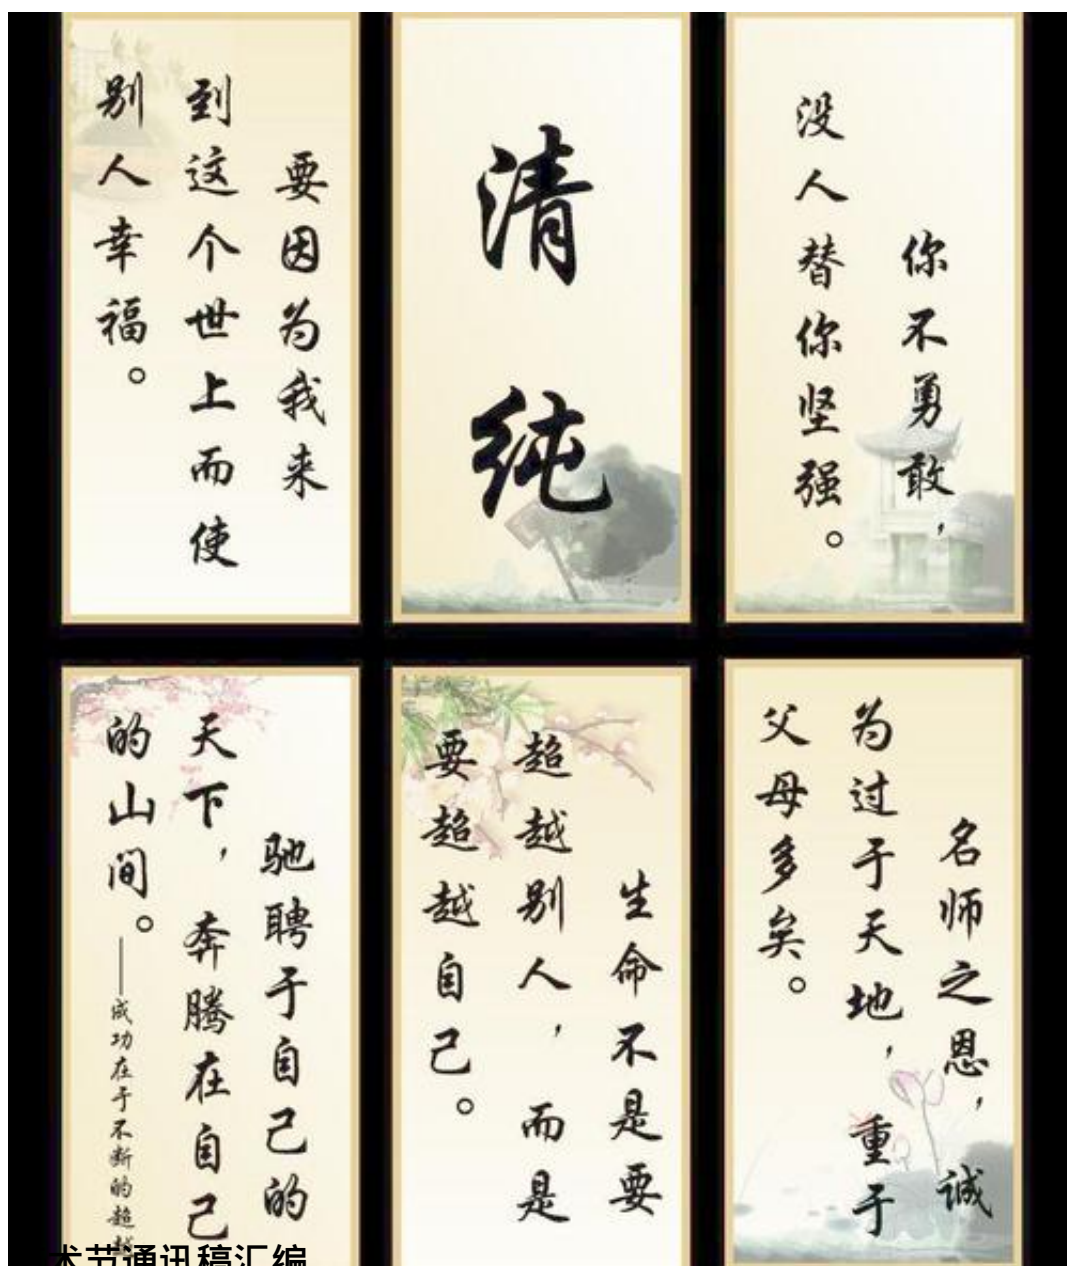 要因为我来
到这个世上而使
别人幸福。
清纯
你不勇敢，
没人替你坚强。
驰聘于自己的
天下，奔腾在自己
的山间。——成功在于不断的超越
生命不是要
超越别人，而是
要超越自己。
名师之恩，诚
为过于天地，重于
父母多矣。
术节通讯稿汇编